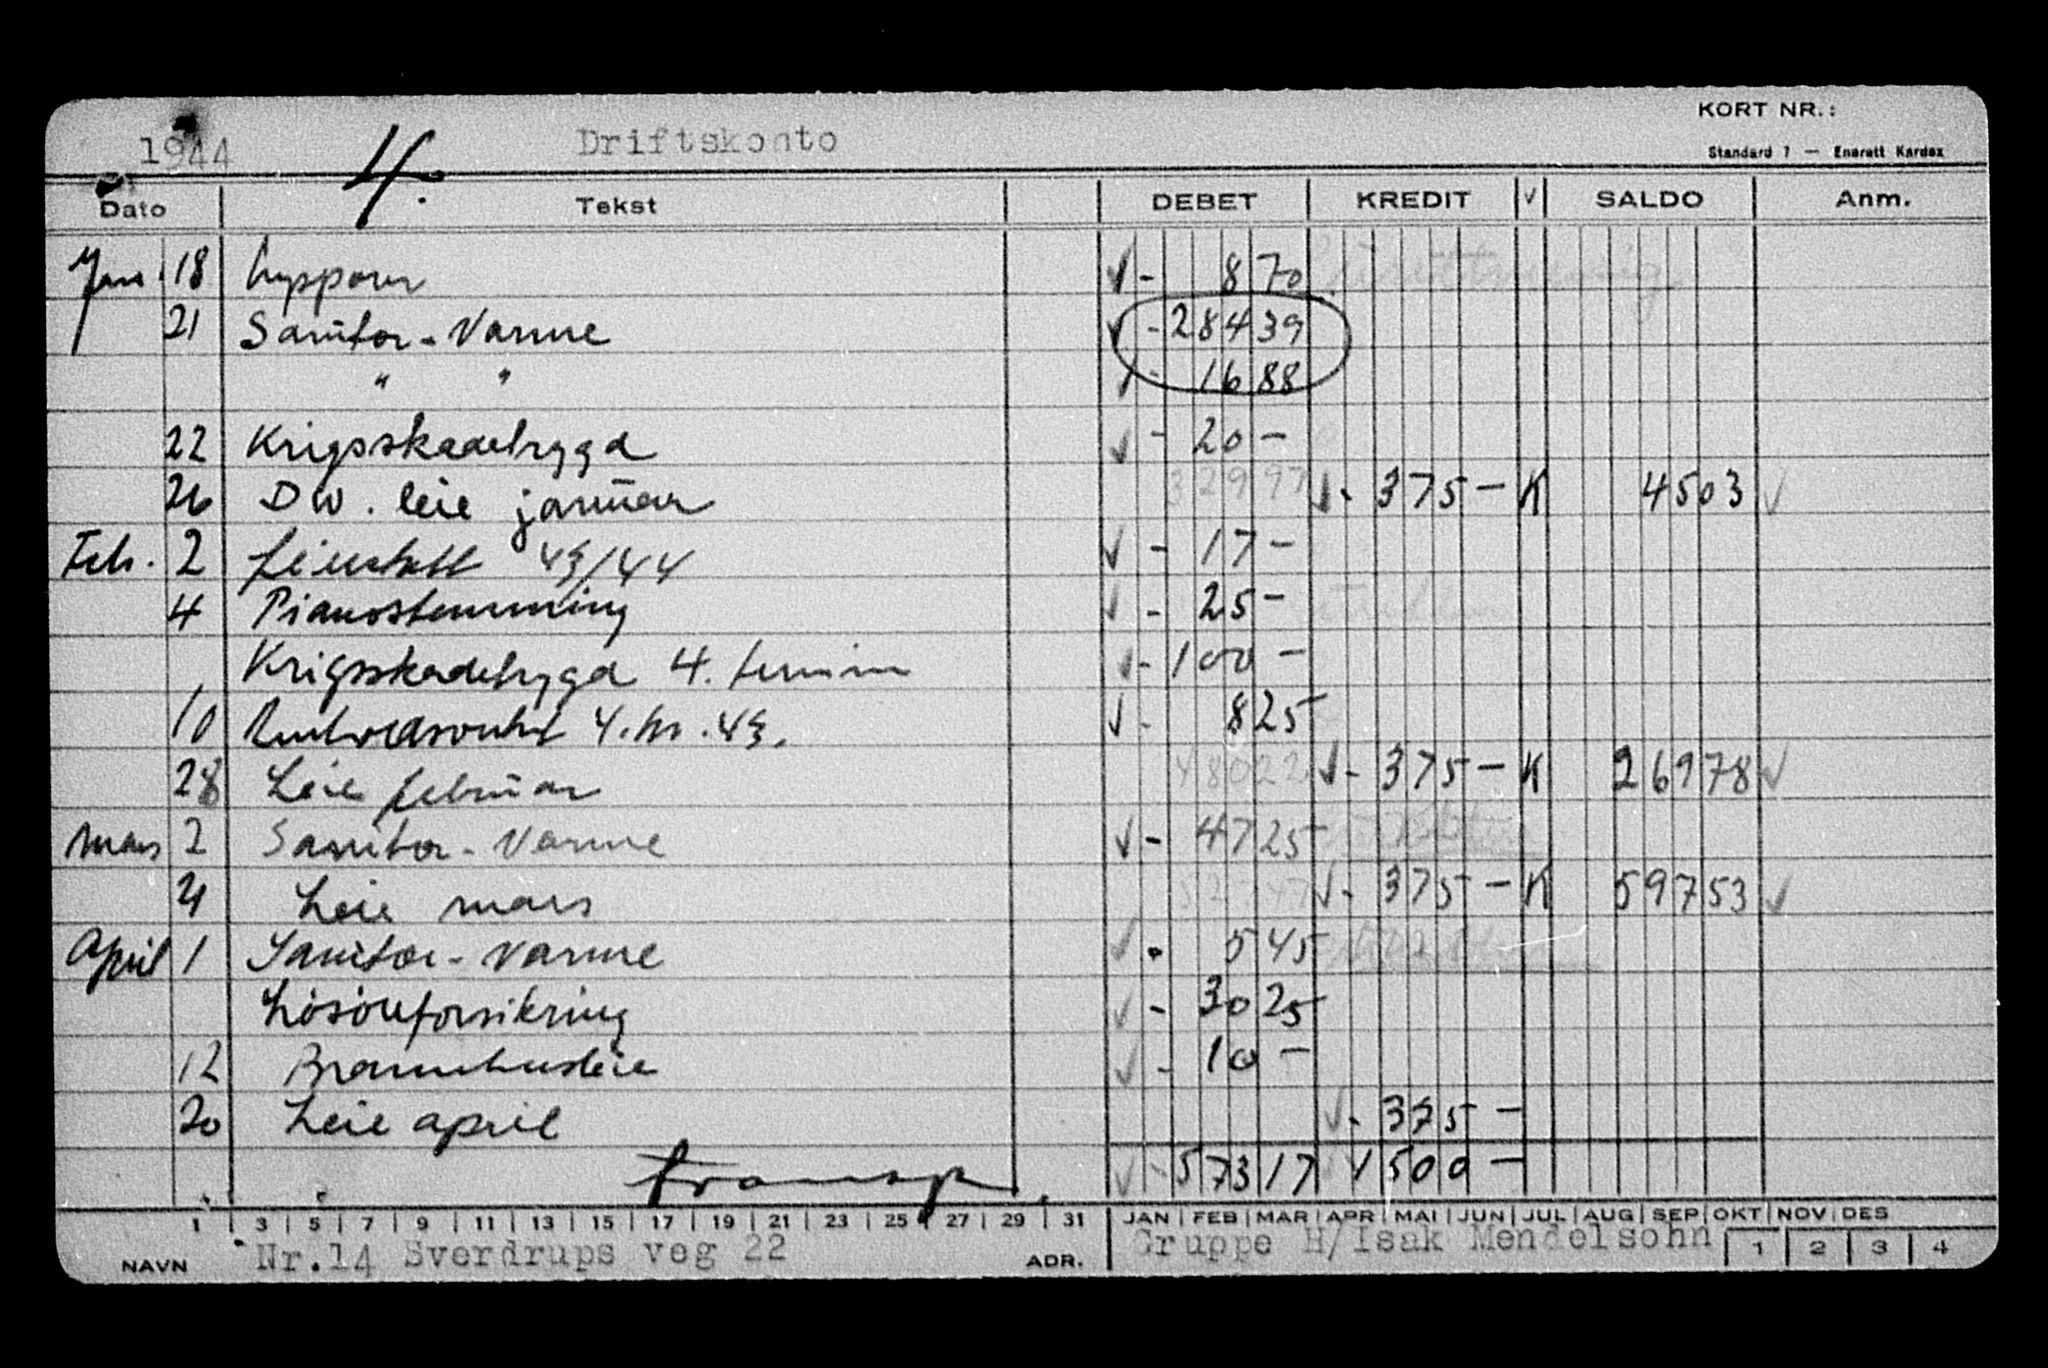 KORT NR.:
1944 4. Driftskonto
Standard 7 — Enerett Kardex
Dato Tekst DEBET KREDIT √ SALDO Anm.
Jan. 18 Lyspærer √ - 8 70
21 Sanitær - Varme √ - 284 39
" " √ - 16 88
22 Krigsskadetrygd √ - 20 -
26 DW. leie januar 329 97 √ - 375 - K 45 03 √
Feb. 2 43/44 √ - 17 -
4 Pianostemming √ - 25 -
Krigsskadetrygd 4. termin √ - 100 -
10 Renholdsavgift 4. kv. 43. √ - 8 25
28 Leie februar 480 22 √ - 375 - K 269 78 √
Mars 2 Sanitær - Varme √ - 47 25
21 Leie mars 527 47 √ - 375 - K 597 53 √
April 1 Sanitær - Varme √ - 5 45
Løsøreforsikring √ - 30 25
12 √ - 10 -
20 Leie april √ - 375 -
transp. √ - 573 17 1500 -
1 3 5 7 9 11 13 15 17 19 21 23 25 27 29 31 JAN FEB MAR APR MAI JUN JUL AUG SEP OKT NOV DES
NAVN Nr.14 Sverdrups veg 22 ADR. Gruppe H/Isak Mendelsohn 1 2 3 4